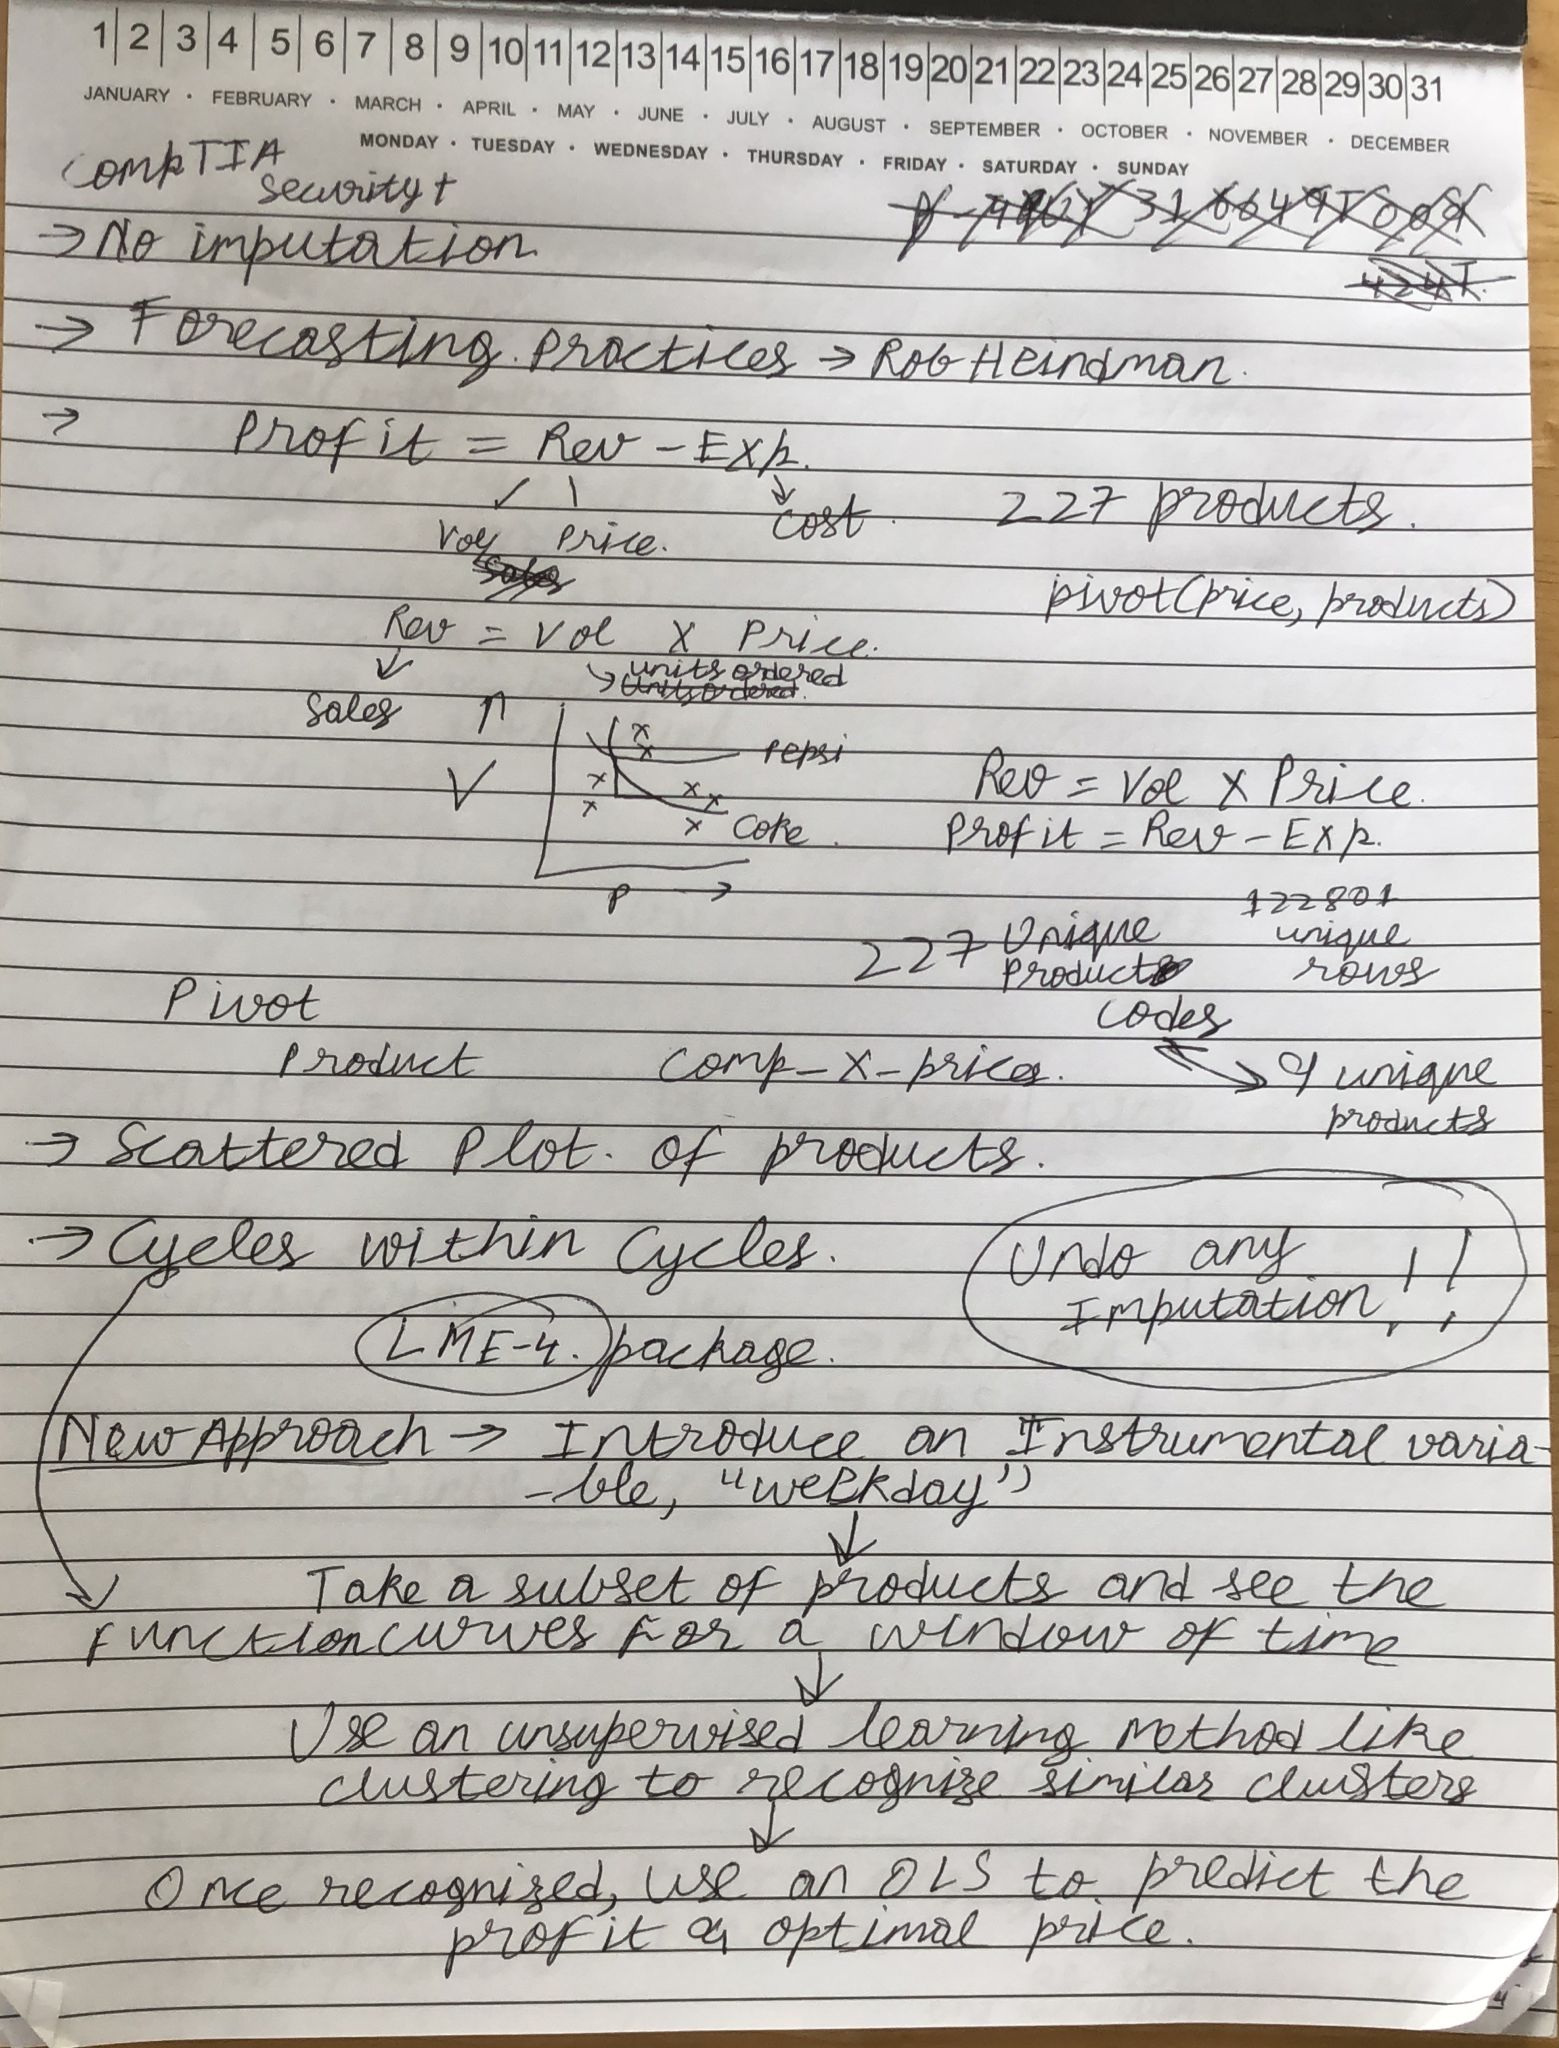 1 2 3 4 5 6 7 8 9 10 11 12 13 14 15 16 17 18 19 20 21 22 23 24 25 26 27 28 29 30 31
JANUARY · FEBRUARY · MARCH · APRIL · MAY · JUNE · JULY · AUGUST · SEPTEMBER · OCTOBER · NOVEMBER · DECEMBER
MONDAY · TUESDAY · WEDNESDAY · THURSDAY · FRIDAY · SATURDAY · SUNDAY
CompTIA
Security+
→ No imputation
→ Forecasting practices → Rob Heindman.
→ Profit = Rev - Exp.
Vol Price. Cost.
227 products.
Sales
pivot(price, products)
Rev = Vol X Price.
units ordered
Units ordered.
Sales
V
Pepsi
Coke.
P →
Rev = Vol X Price.
Profit = Rev - Exp.
227 Unique
Products
codes
122801
unique
rows
Pivot
Product Comp_X_prices.
9 unique
products
→ Scattered Plot. of products.
→ Cycles within Cycles.
Undo any
Imputation!!
LME-4. package.
New Approach → Introduce an Instrumental varia-
-ble, "weekday"
Take a subset of products and see the
function curves for a window of time
Use an unsupervised learning method like
clustering to recognize similar clusters
Once recognized, use an OLS to predict the
profit & optimal price.